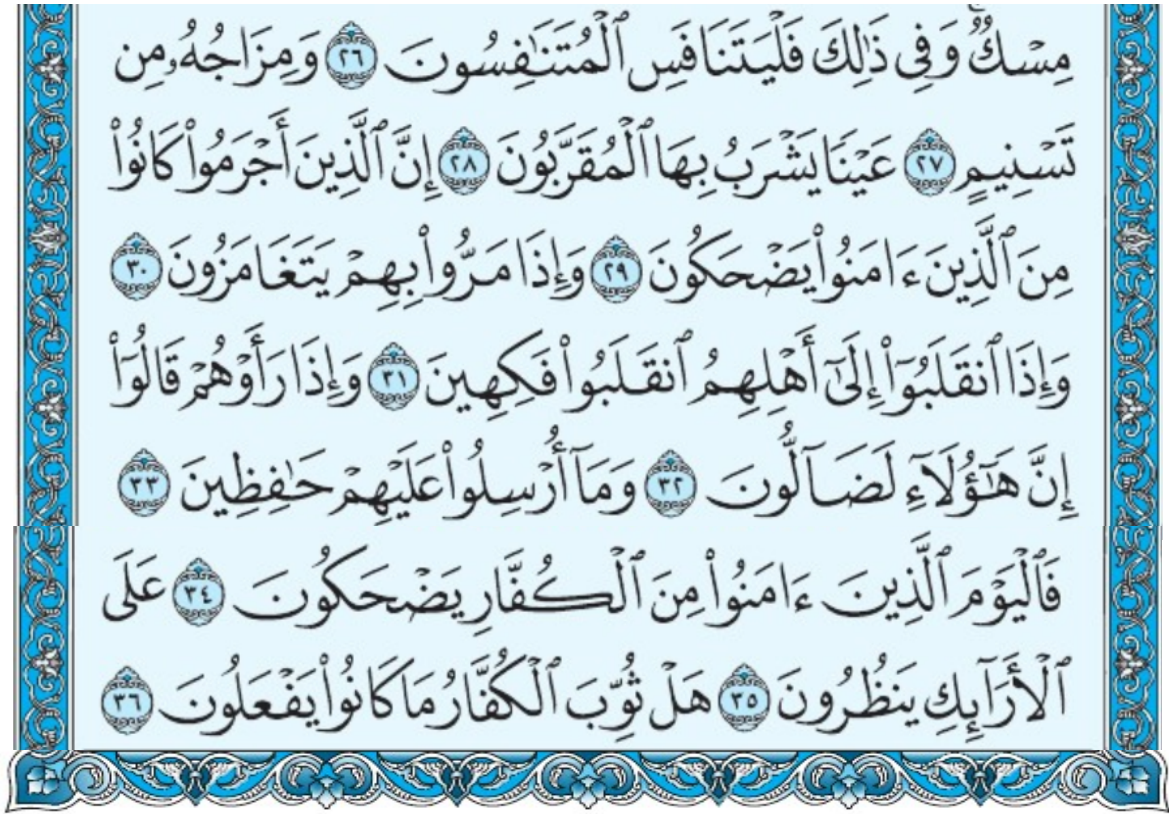 مِسۡكٞۚ وَفِي ذَٰلِكَ فَلۡيَتَنَافَسِ ٱلۡمُتَنَٰفِسُونَ ٢٦ وَمِزَاجُهُۥ مِن
تَسۡنِيمٍ ٢٧ عَيۡنٗا يَشۡرَبُ بِهَا ٱلۡمُقَرَّبُونَ ٢٨ إِنَّ ٱلَّذِينَ أَجۡرَمُواْ كَانُواْ
مِنَ ٱلَّذِينَ ءَامَنُواْ يَضۡحَكُونَ ٢٩ وَإِذَا مَرُّواْ بِهِمۡ يَتَغَامَزُونَ ٣٠
وَإِذَا ٱنقَلَبُوٓاْ إِلَىٰٓ أَهۡلِهِمُ ٱنقَلَبُواْ فَكِهِينَ ٣١ وَإِذَا رَأَوۡهُمۡ قَالُوٓاْ
إِنَّ هَٰٓؤُلَآءِ لَضَآلُّونَ ٣٢ وَمَآ أُرۡسِلُواْ عَلَيۡهِمۡ حَٰفِظِينَ ٣٣
فَٱلۡيَوۡمَ ٱلَّذِينَ ءَامَنُواْ مِنَ ٱلۡكُفَّارِ يَضۡحَكُونَ ٣٤ عَلَى
ٱلۡأَرَآئِكِ يَنظُرُونَ ٣٥ هَلۡ ثُوِّبَ ٱلۡكُفَّارُ مَا كَانُواْ يَفۡعَلُونَ ٣٦